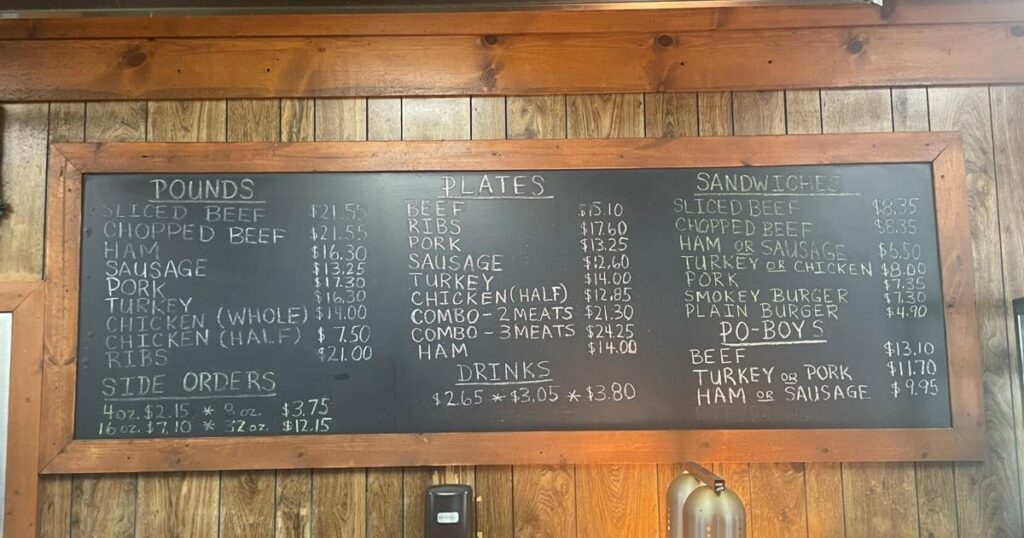 POUNDS
SLICED BEEF $21.55
CHOPPED BEEF $21.55
HAM $16.30
SAUSAGE $13.25
PORK $17.30
TURKEY $16.30
CHICKEN (WHOLE) $14.00
CHICKEN (HALF) $7.50
RIBS $21.00
SIDE ORDERS
4 oz. $2.15 * 8 oz. $3.75
16 oz. $7.10 * 32 oz. $12.15
PLATES
BEEF $15.10
RIBS $17.60
PORK $13.25
SAUSAGE $12.60
TURKEY $14.00
CHICKEN (HALF) $12.85
COMBO - 2 MEATS $21.30
COMBO - 3 MEATS $24.25
HAM $14.00
DRINKS
$2.65 * $3.05 * $3.80
SANDWICHES
SLICED BEEF $8.35
CHOPPED BEEF $8.35
HAM OR SAUSAGE $6.50
TURKEY OR CHICKEN $8.00
PORK $7.35
SMOKEY BURGER $7.30
PLAIN BURGER $4.90
PO-BOYS
BEEF $13.10
TURKEY OR PORK $11.70
HAM OR SAUSAGE $9.95